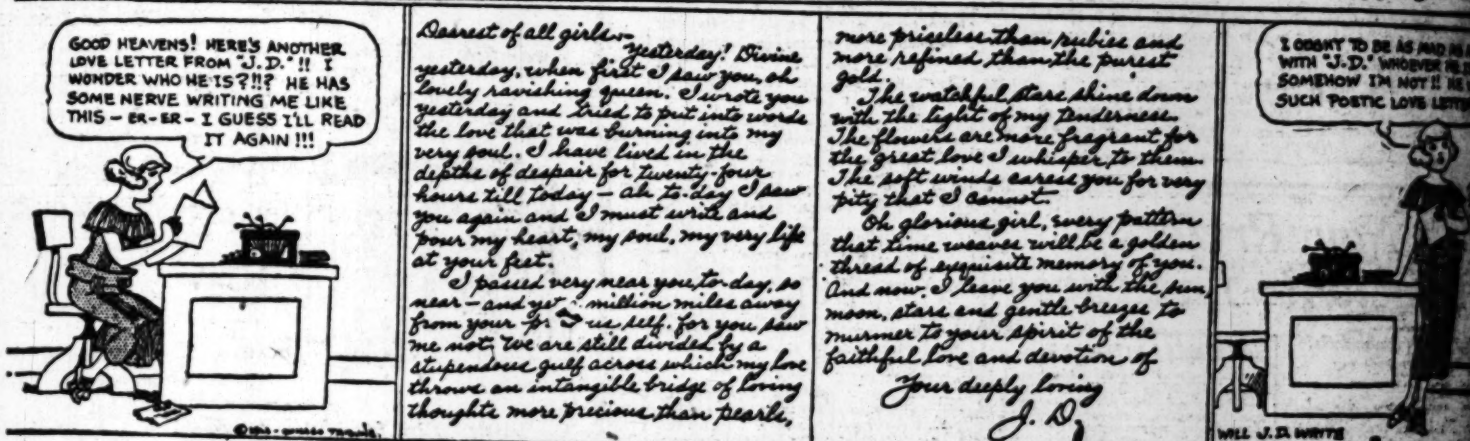 GOOD HEAVENS! HERE'S ANOTHER
LOVE LETTER FROM "J.D."!! I
WONDER WHO HE IS?!!? HE HAS
SOME NERVE WRITING ME LIKE
THIS — ER-ER- I GUESS I'LL READ
IT AGAIN!!!
Dearest of all girls—
Yesterday! Divine
yesterday, when first I saw you, oh
lovely ravishing queen. I wrote you
yesterday and tried to put into words
the love that was burning into my
very soul. I have lived in the
depths of despair for twenty-four
hours till today — ah to-day I saw
you again and I must write and
pour my heart, my soul, my very life
at your feet.
I passed very near you to-day, so
near — and yet million miles away
from your self, for you saw
me not. We are still divided by a
stupendous gulf across which my love
throws an intangible bridge of loving
thoughts more precious than pearls,
more priceless than rubies and
more refined than the purest
gold.
The watchful stars shine down
with the light of my tenderness.
The flowers are more fragrant for
the great love I whisper to them.
The soft winds caress you for very
pity that I cannot.
Oh glorious girl, every pattern
that time weaves will be a golden
thread of exquisite memory of you.
And now I leave you with the sun,
moon, stars and gentle breezes to
murmer to your spirit of the
faithful love and devotion of
Your deeply loving
J. D.
I OUGHT TO BE AS MAD AS A
WITH "J.D." WHOEVER HE IS
SOMEHOW I'M NOT!! HE
SUCH POETIC LOVE
WILL J.D. WRITE